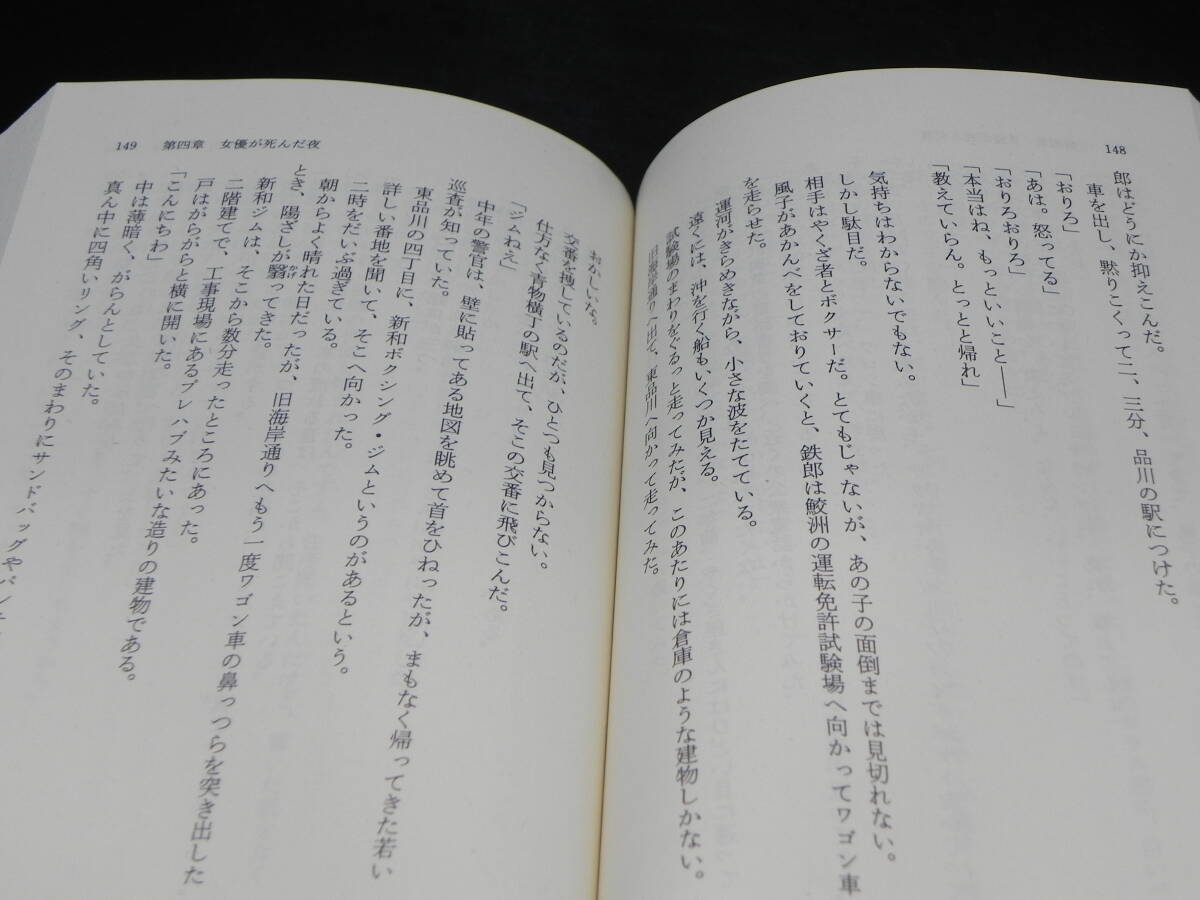 148
郎はどうにか抑えこんだ。
車を出し、黙りこくって二、三分、品川の駅につけた。
「おりろ」
「あは。怒ってる」
「おりろおりろ」
「本当はね、もっといいこと――」
「教えていらん。とっとと帰れ」
気持ちはわからないでもない。
しかし駄目だ。
相手はやくざ者とボクサーだ。とてもじゃないが、あの子の面倒までは見切れない。
風子があかんべをしておりていくと、鉄郎は鮫洲の運転免許試験場へ向かってワゴン車
を走らせた。
運河がきらめきながら、小さな波をたてている。
遠くには、沖を行く船もいくつか見える。
試験場のまわりをぐるっと走ってみたが、このあたりには倉庫のような建物しかない。
旧海岸通りへ出て、東品川へ向かって走ってみた。
149 第四章 女優が死んだ夜
おかしいな。
交番を捜しているのだが、ひとつも見つからない。
仕方なく青物横丁の駅へ出て、そこの交番に飛びこんだ。
「ジムねえ」
中年の警官は、壁に貼ってある地図を眺めて首をひねったが、まもなく帰ってきた若い
巡査が知っていた。
東品川の四丁目に、新和ボクシング・ジムというのがあるという。
詳しい番地を聞いて、そこへ向かった。
二時をだいぶ過ぎている。
朝からよく晴れた日だったが、旧海岸通りへもう一度ワゴン車の鼻っつらを突き出した
とき、陽ざしが翳ってきた。
かげ
新和ジムは、そこから数分走ったところにあった。
二階建てで、工事現場にあるプレハブみたいな造りの建物である。
戸はがらがらと横に開いた。
「こんにちわ」
中は薄暗く、がらんとしていた。
真ん中に四角いリング、そのまわりにサンドバッグやパンチ